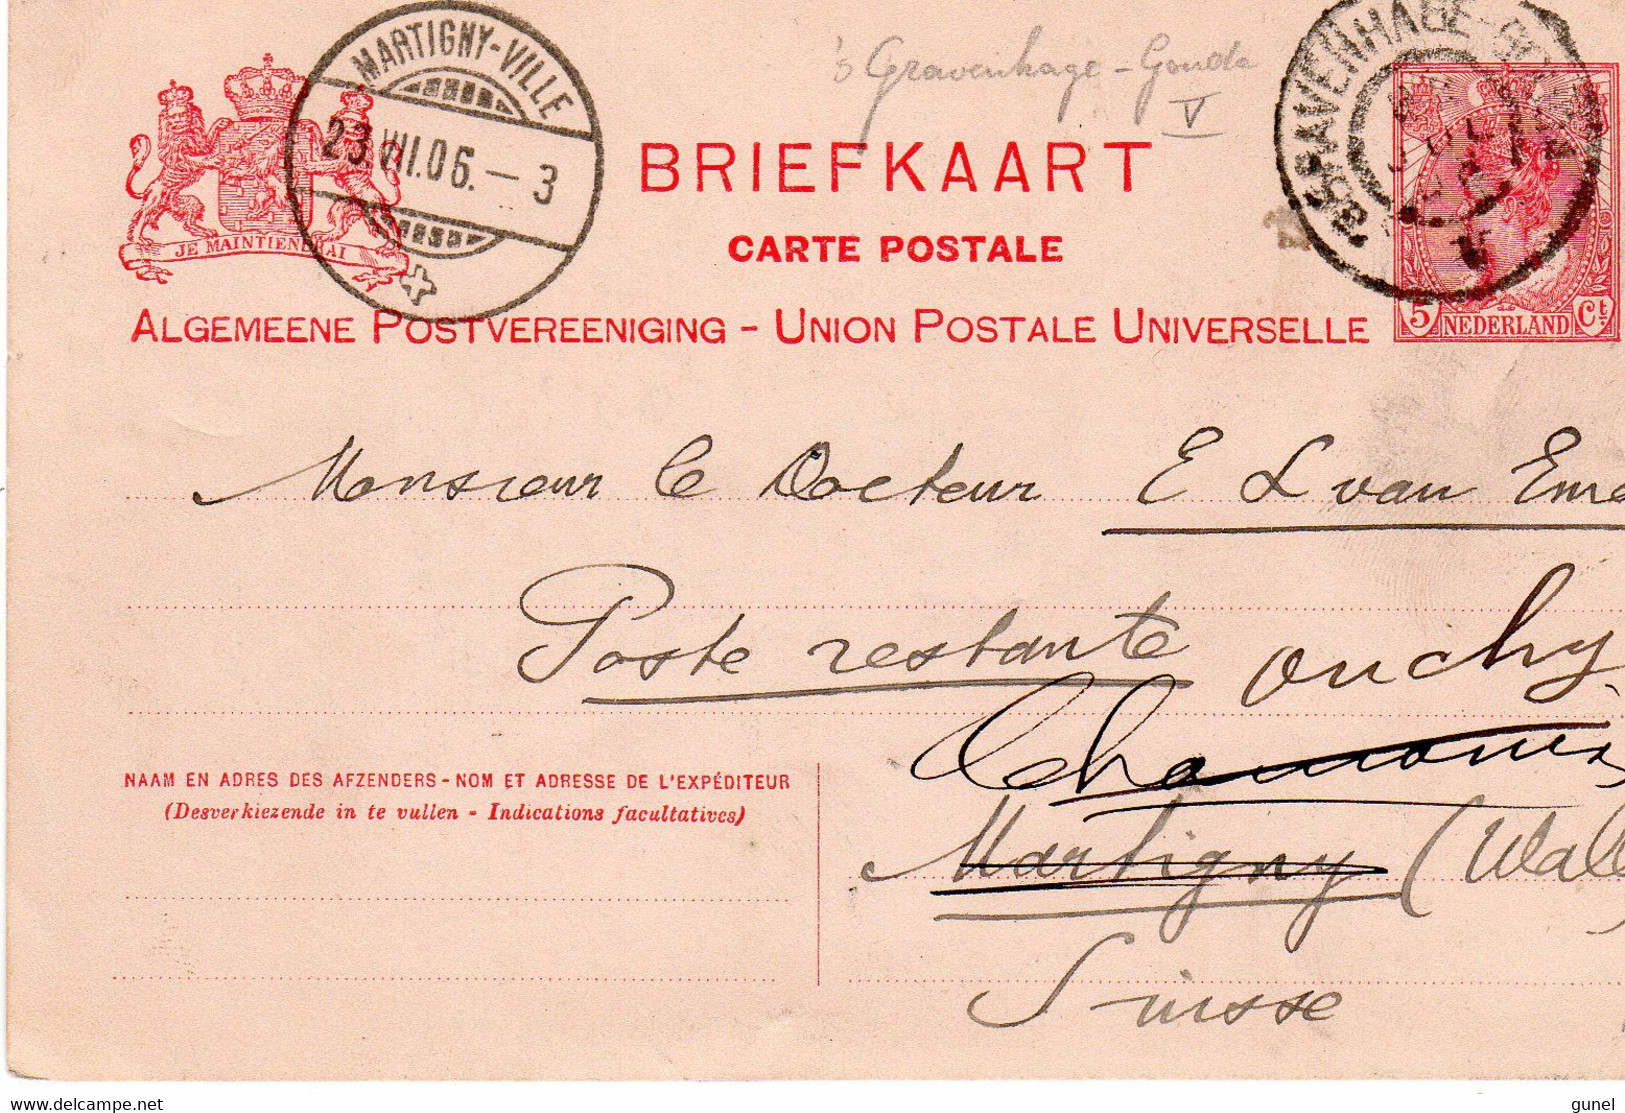 MARTIGNY-VILLE
23.VII.06.-3
's Gravenhage-Gouda
V
'S GRAVENHAGE-GO
JE MAINTIENDRAI
BRIEFKAART
CARTE POSTALE
ALGEMEENE POSTVEREENIGING - UNION POSTALE UNIVERSELLE
5 NEDERLAND Ct
Monsieur le Docteur E L van Eme
Poste restante Ouchy
Chamonix
Martigny (Wall
Suisse
NAAM EN ADRES DES AFZENDERS - NOM ET ADRESSE DE L'EXPÉDITEUR
(Desverkiezende in te vullen - Indications facultatives)
delcampe.net
gunel